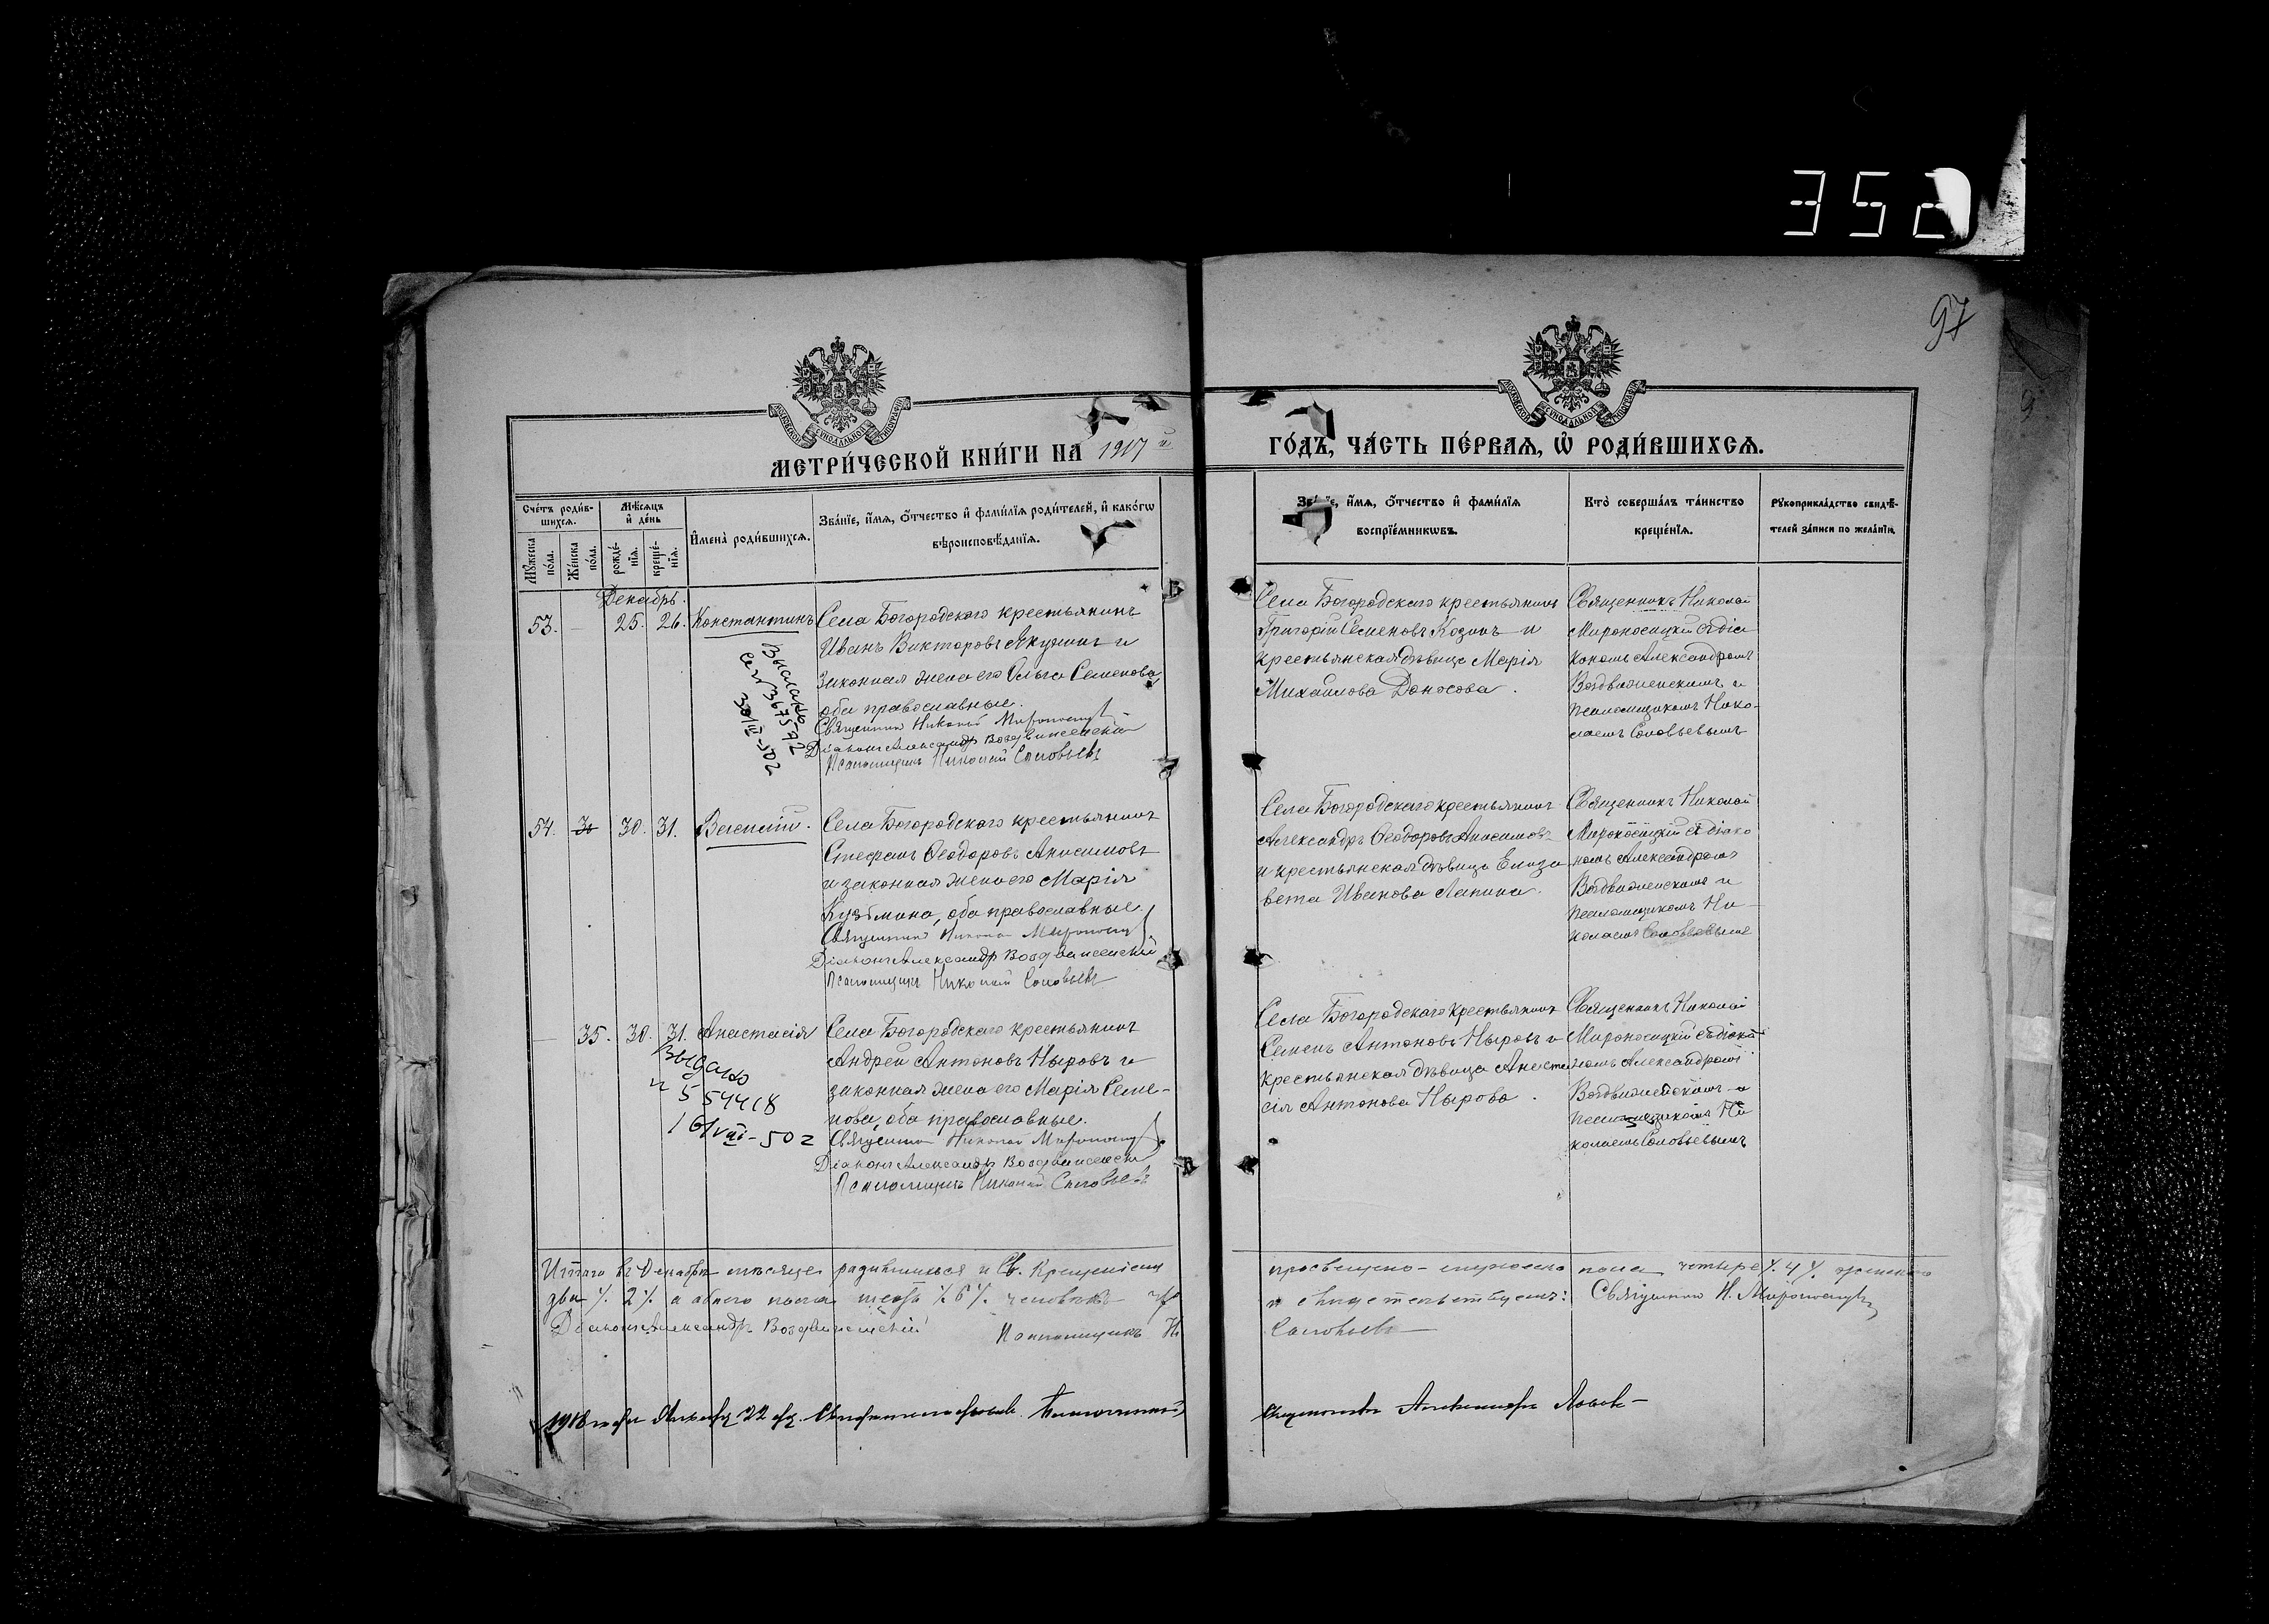 352
97
МЕТРИ́ЧЕСКОЙ КНИ́ГИ НА 1917 й
ГО́ДЪ, ЧА́СТЬ ПЕ́РВАЯ, Ѿ РОДИ́ВШИХСЯ.
Сче́тъ роди́в-
шихся.
Мѣ́сяцъ
и҆ де́нь
Му́жеска
по́ла.
Же́нска
по́ла.
рожде́-
нїя.
креще́-
нїя.
И҆мена̀ роди́вшихся.
Зва́нїе, и҆́мя, о҆́тчество и҆ фами́лїя роди́телей, и҆ како́гѡ
вѣроисповѣ́данїя.
Зва́нїе, и҆́мя, о҆́тчество и҆ фами́лїя
воспрїе́мникѡвъ.
Кто̀ соверша́лъ та́инство
креще́нїя.
Рукоприкла́дство свидѣ́-
телей за́писи по жела́нїю.
Декабрь.
53. — 25. 26. Константинъ
Села Богородскаго крестьянинъ
Иванъ Викторовъ Якунинъ и
законная жена его Ольга Семенова,
оба православные.
Священникъ Николай Мироносицкій
Діаконъ Александръ Воздвиженскій
Псаломщикъ Николай Соловьевъ
Села Богородскаго крестьянинъ
Григорій Семеновъ Козинъ и
крестьянская дѣвица Марія
Михайлова Доносова.
Священникъ Николай
Мироносицкій съ діа-
кономъ Александромъ
Воздвиженскимъ и
псаломщикомъ Нико-
лаемъ Соловьевымъ
54. 30. 31. Василій.
Села Богородскаго крестьянинъ
Стефанъ Ѳеодоровъ Анисимовъ
и законная жена его Марія
Кузьмина, оба православные.
Священникъ Николай Мироносицкій
Діаконъ Александръ Воздвиженскій
Псаломщикъ Николай Соловьевъ
Села Богородскаго крестьянинъ
Александръ Ѳеодоровъ Анисимовъ
и крестьянская дѣвица Елиза-
вета Иванова Лапина.
Священникъ Николай
Мироносицкій съ діако-
номъ Александромъ
Воздвиженскимъ и
псаломщикомъ Ни-
колаемъ Соловьевымъ
— 35. 30. 31. Анастасія
Выдано
5 54418
16/VIII-50 г
Села Богородскаго крестьянинъ
Андрей Антоновъ Ныровъ и
законная жена его Марія Семе-
нова, оба православные.
Священникъ Николай Мироносицкій
Діаконъ Александръ Воздвиженскій
Псаломщикъ Николай Соловьевъ
Села Богородскаго крестьянинъ
Семенъ Антоновъ Ныровъ и
крестьянская дѣвица Анаста-
сія Антонова Нырова.
Священникъ Николай
Мироносицкій съ діако-
номъ Александромъ
Воздвиженскимъ и
псаломщикомъ Ни-
колаемъ Соловьевымъ
Итого въ Декабрѣ мѣсяцѣ родившихся и Св. Крещеніемъ просвѣщено — мужеска пола четыре ٪ 4 ٪ женскаго
два ٪ 2 ٪ а обоего пола шесть ٪ 6 ٪ человѣкъ и свидѣтельствуемъ: Священникъ Н. Мироносицкій
Діаконъ Александръ Воздвиженскій Псаломщикъ Н. Соловьевъ
1918 Января 22 Александръ